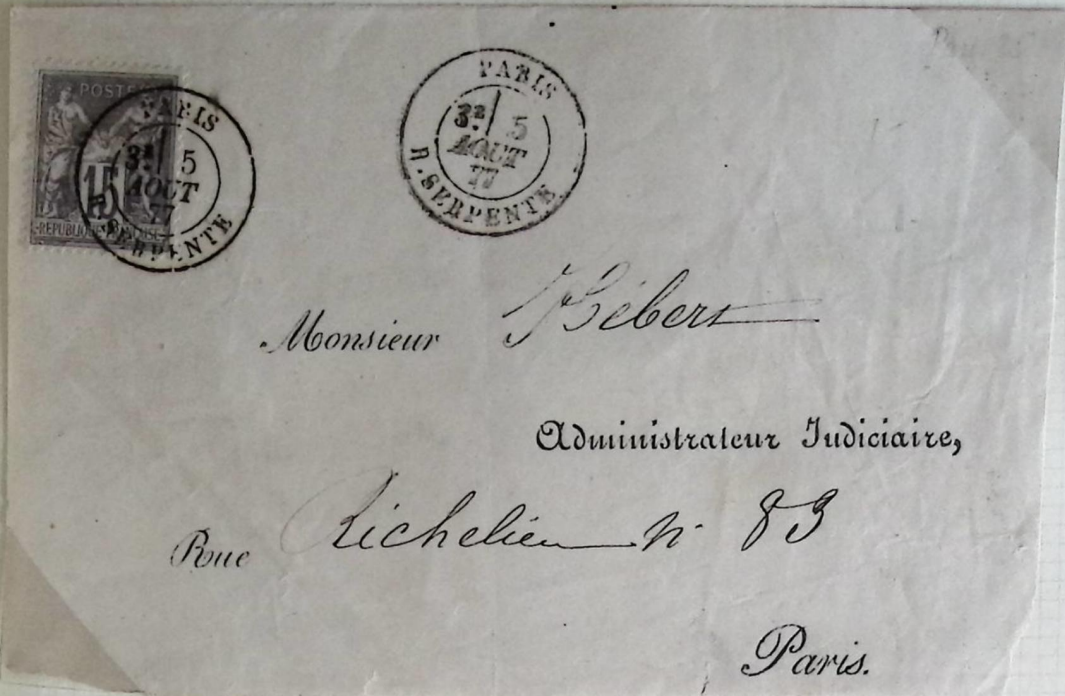 POSTES
15
REPUBLIQUE FRANÇAISE
PARIS
3ᴱ 5
AOUT
77
R. SERPENTE
PARIS
3ᴱ 5
AOUT
77
R. SERPENTE
Monsieur Hébert
Administrateur Judiciaire,
Rue Richelieu n° 83
Paris.